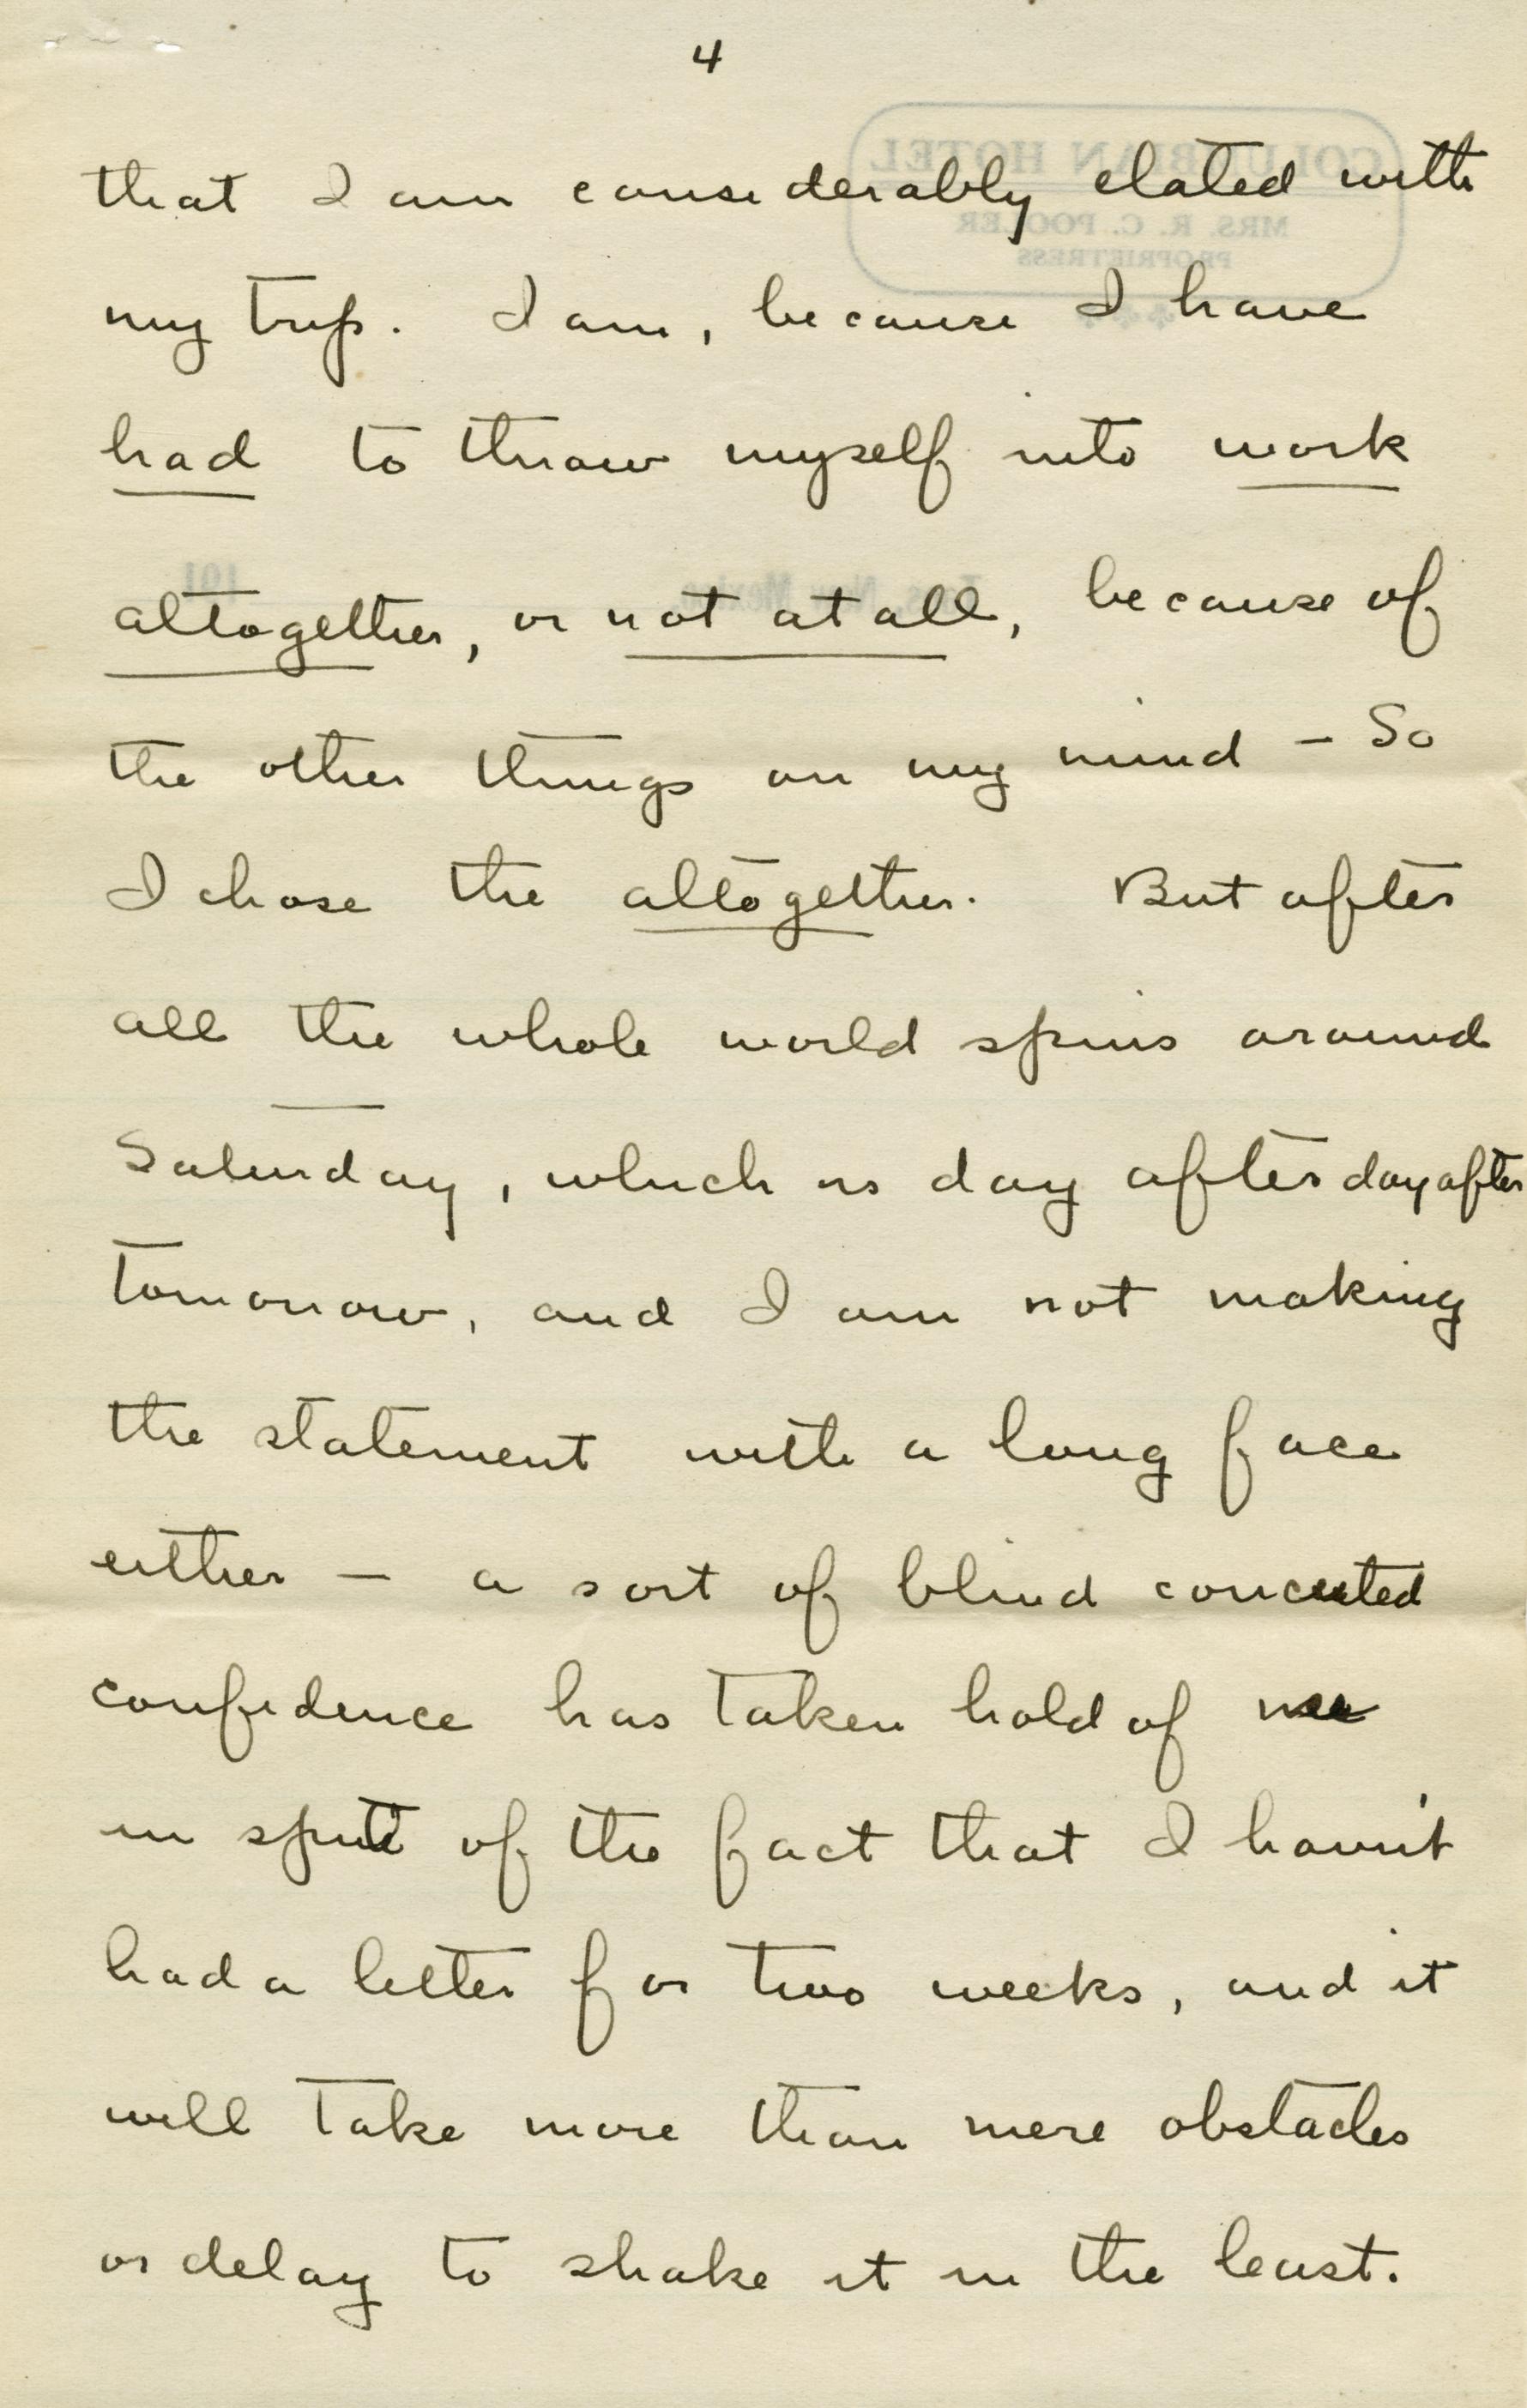 4
COLUMBIAN HOTEL
MRS. R. C. POOLER
PROPRIETRESS
that I am considerably elated with
my trip. I am, because I have
had to throw myself into work
Taos, New Mexico 191
altogether, or not at all, because of
the other things on my mind – So
I chose the altogether. But after
all the whole world spins around
Saturday, which is day after day after
tomorrow, and I am not making
the statement with a long face
either – a sort of blind conceited
confidence has taken hold of me
in spite of the fact that I havn't
had a letter for two weeks, and it
will take more than mere obstacles
or delay to shake it in the least.